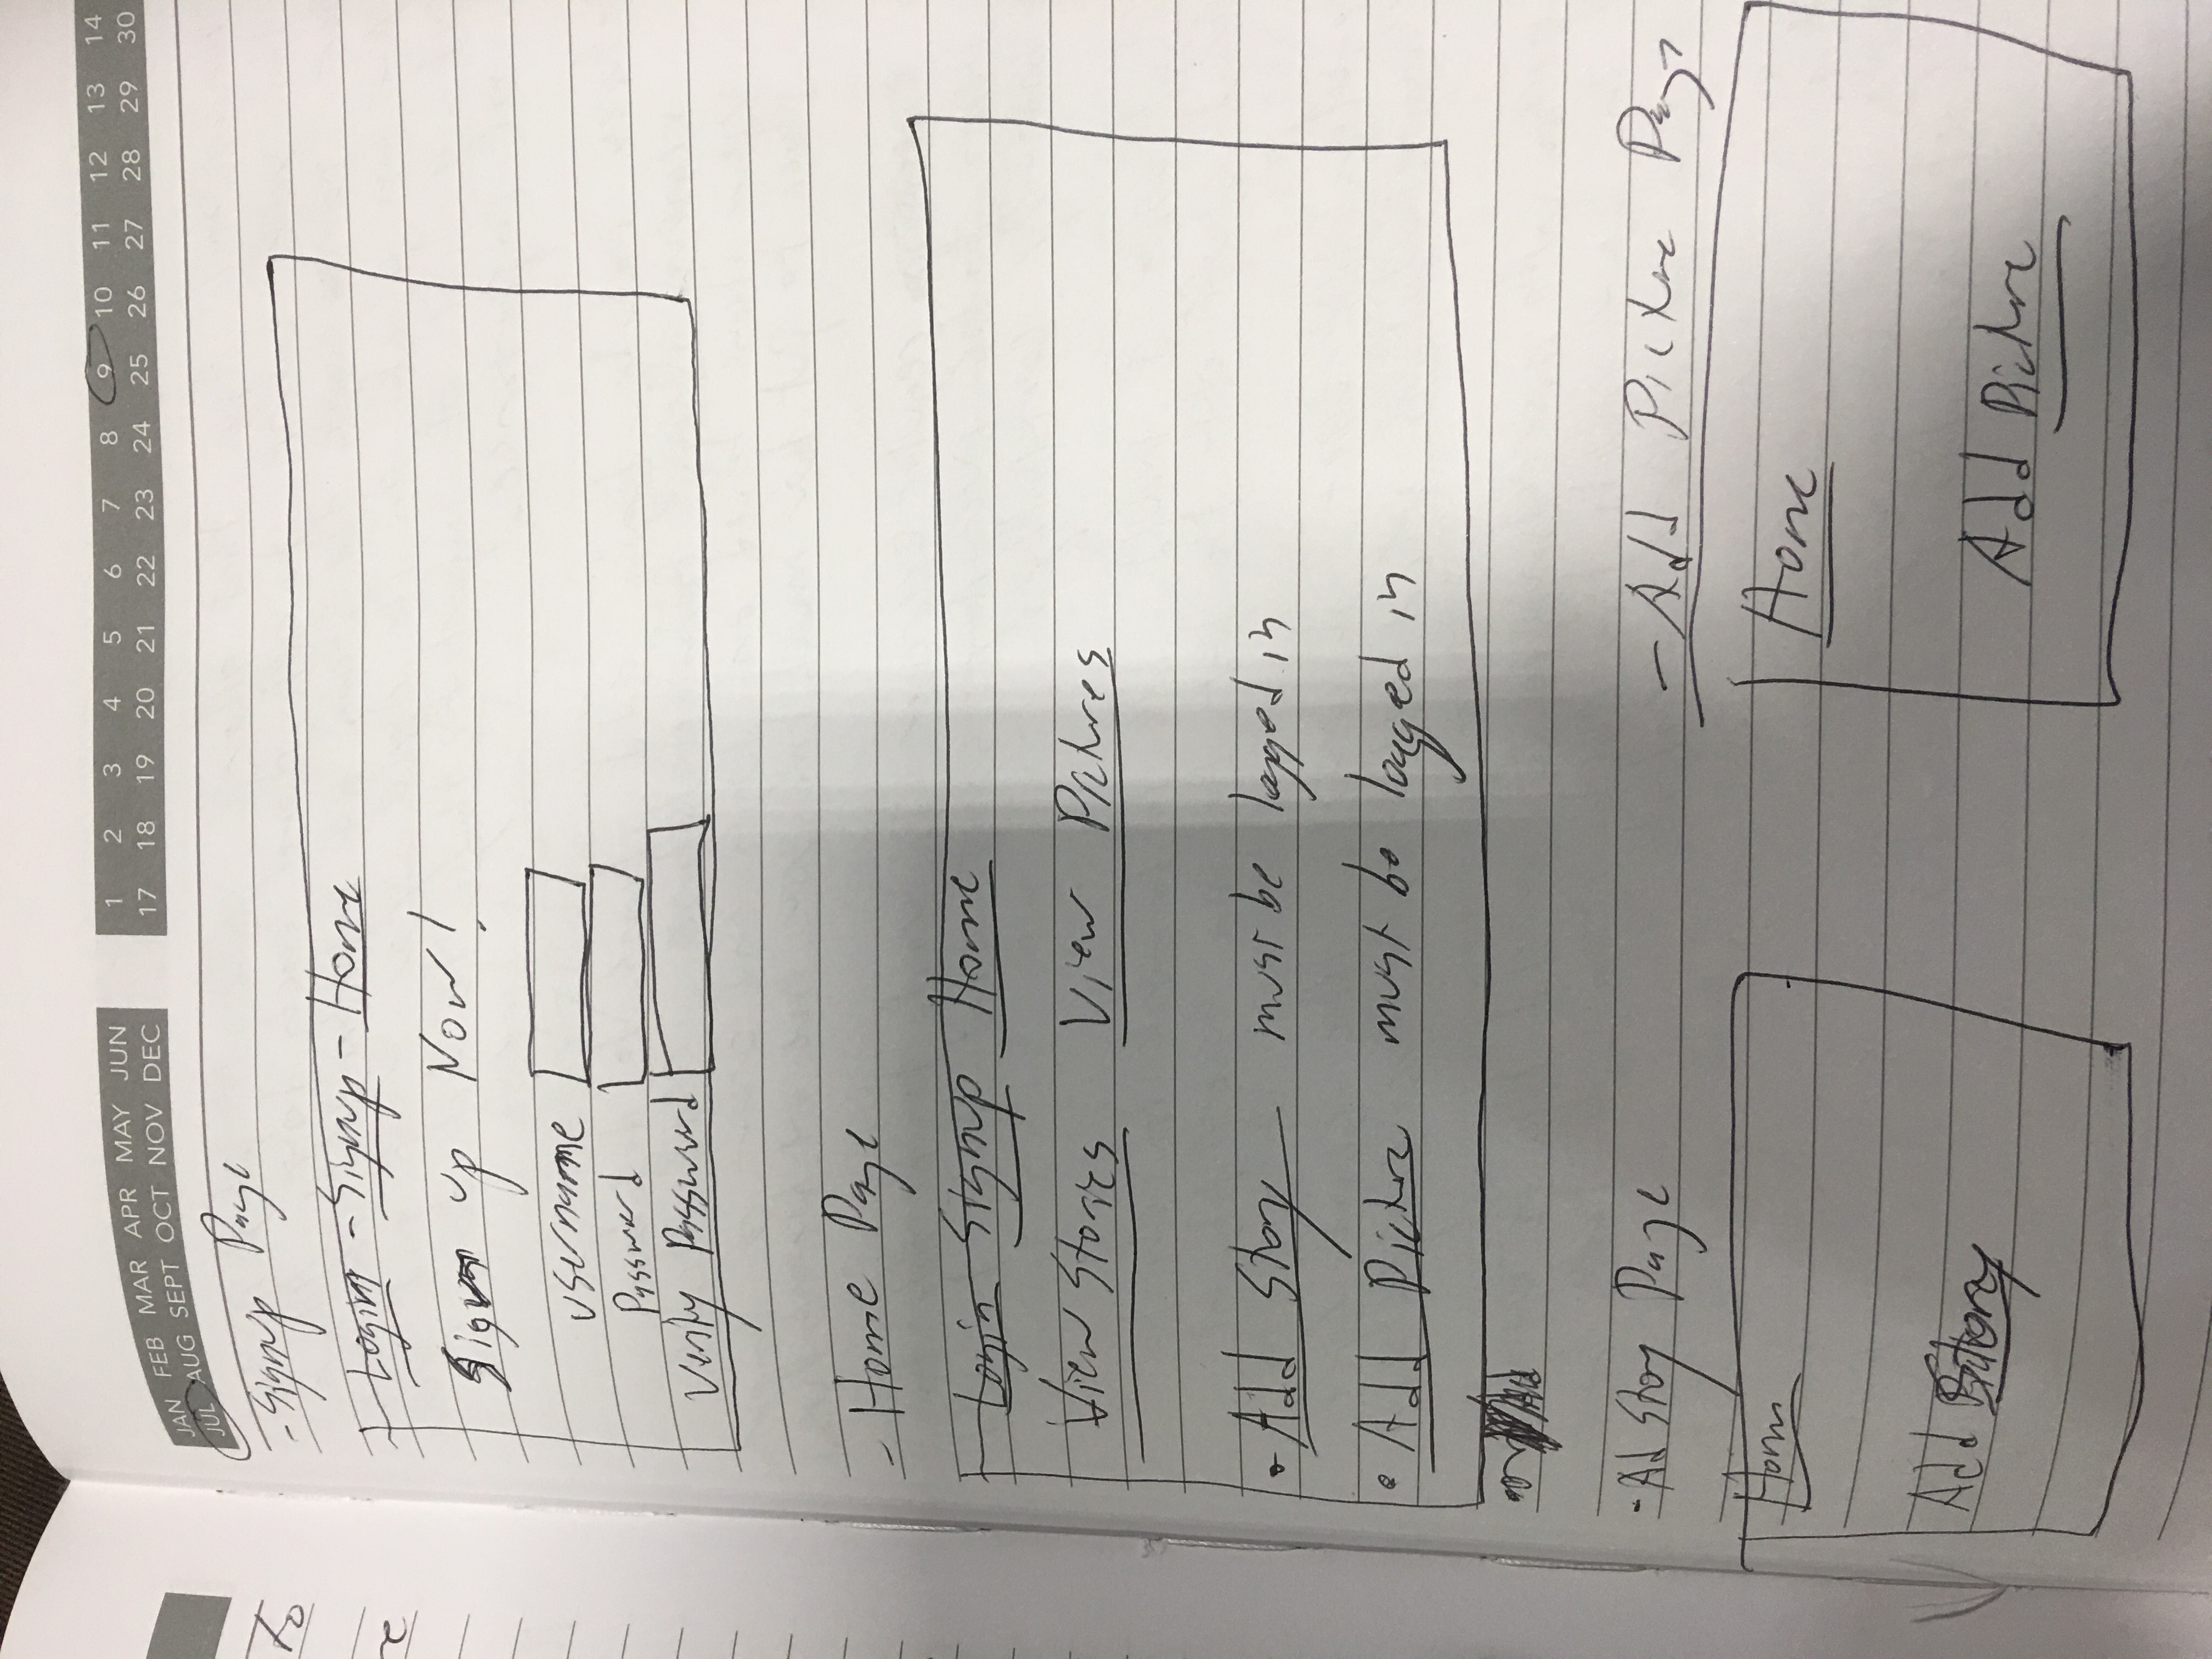 JAN FEB MAR APR MAY JUN
JUL AUG SEPT OCT NOV DEC
1 2 3 4 5 6 7 8 9 10 11 12 13 14
17 18 19 20 21 22 23 24 25 26 27 28 29 30
To
- Signup Page
Login - Signup - Home
Sign up Now!
username
Password
Verify Password
- Home Page
Login Signup Home
View Stories View Pictures
• Add Story must be logged in
• Add Picture must be logged in
- Ad Story Page
Home
Add Story
- Add Picture Page
Home
Add Picture